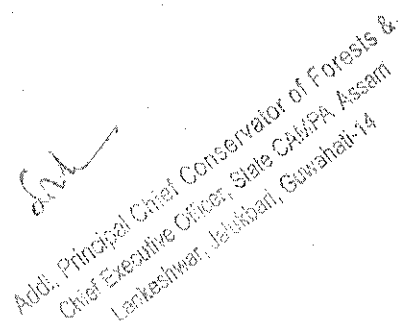 Addl. Principal Chief Conservator of Forests &
Chief Executive Officer, State CAMPA, Assam
Lankeshwar, Jalukbari, Guwahati-14